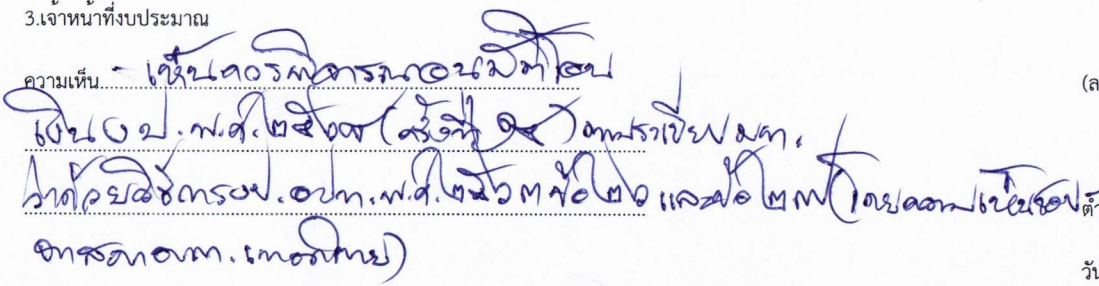 3.เจ้าหน้าที่งบประมาณ
ความเห็น - เห็นควรพิจารณาอนุมัติโอน
(ล
เงิน งป. พ.ศ. ๒๕๖๗ (ครั้งที่ ๑๕) ตามระเบียบ มท.
ว่าด้วยวิธีการงป. อปท. พ.ศ. ๒๕๖๓ ข้อ ๒๖ และข้อ ๒๗ (โดยความเห็นชอบ ตำ
จากสภา
วัน